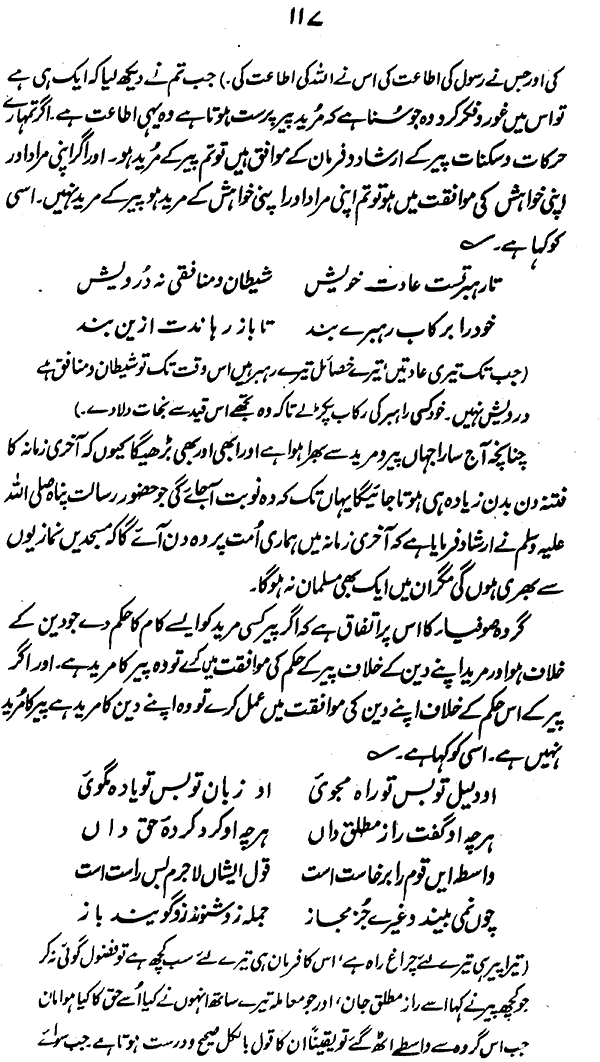 ۱۱۷
کی اور جس نے رسول کی اطاعت کی اس نے اللہ کی اطاعت کی۔) جب تم نے دیکھ لیا کہ ایک ہی ہے
تو اس میں غور و فکر کرو وہ جو سُنا ہے کہ مُرید پیر پرست ہوتا ہے وہ یہی اطاعت ہے۔ اگر تمہارے
حرکات و سکنات پیر کے ارشاد و فرمان کے موافق ہیں تو تم پیر کے مُرید ہو۔ اور اگر اپنی مراد اور
اپنی خواہش کی موافقت میں ہو تو تم اپنی مراد اور اپنی خواہش کے مرید ہو پیر کے مرید نہیں۔ اسی
کو کہا ہے۔
تا رہبر تست عادت خویش شیطان و منافقی نہ درویش
خود را برکاب رہبرے بند تا باز رہاندت ازین بند
(جب تک تیری عادتیں، تیرے خصائل تیرے رہبر ہیں اس وقت تک تو شیطان و منافق ہے
درویش نہیں۔ خود کسی راہبر کی رکاب پکڑ لے تاکہ وہ تجھے اس قید سے نجات دلا دے۔)
چنانچہ آج سارا جہاں پیر و مرید سے بھرا ہوا ہے اور ابھی اور بھی بڑھیگا کیوں کہ آخری زمانہ کا
فتنہ دن بدن زیادہ ہی ہوتا جائیگا یہاں تک کہ وہ نوبت آ جائے گی جو حضور رسالت پناہ صلی اللہ
علیہ وسلم نے ارشاد فرمایا ہے کہ آخری زمانہ میں ہماری اُمت پر وہ دن آئے گا کہ مسجدیں نمازیوں
سے بھری ہوں گی مگر ان میں ایک بھی مسلمان نہ ہوگا۔
گروہ صوفیا۔ کا اس پر اتفاق ہے کہ اگر پیر کسی مرید کو ایسے کام کا حکم دے جو دین کے
خلاف ہو اور مرید اپنے دین کے خلاف پیر کے حکم کی موافقت میں کرے تو وہ پیر کا مرید ہے۔ اور اگر
پیر کے اس حکم کے خلاف اپنے دین کی موافقت میں عمل کرے تو وہ اپنے دین کا مرید ہے پیر کا مُرید
نہیں ہے۔ اسی کو کہا ہے۔
او دلیل تو بس تو راہ مجوی او زبان تو بس تو یاوہ مگوی
ہر چہ او گفت راز مطلق داں ہر چہ او کرد کردۂ حق داں
واسطہ ایں قوم را برخاست است قول ایشاں لاجرم بس راست است
چوں نمی بیند و غیرے جُز مجاز جملہ زو شنوند زو گویند باز
(تیرا پیر ہی تیرے لئے چراغ راہ ہے، اس کا فرمان ہی تیرے لئے سب کچھ ہے تو فضول گوئی نہ کر
جو کچھ پیر نے کہا اسے راز مطلق جان، اور جو معاملہ تیرے ساتھ انہوں نے کیا اُسے حق کا کیا ہوا مان
جب اس گروہ سے واسطے اٹھ گئے تو یقیناً ان کا قول بالکل صحیح و درست ہوتا ہے جب سوائے